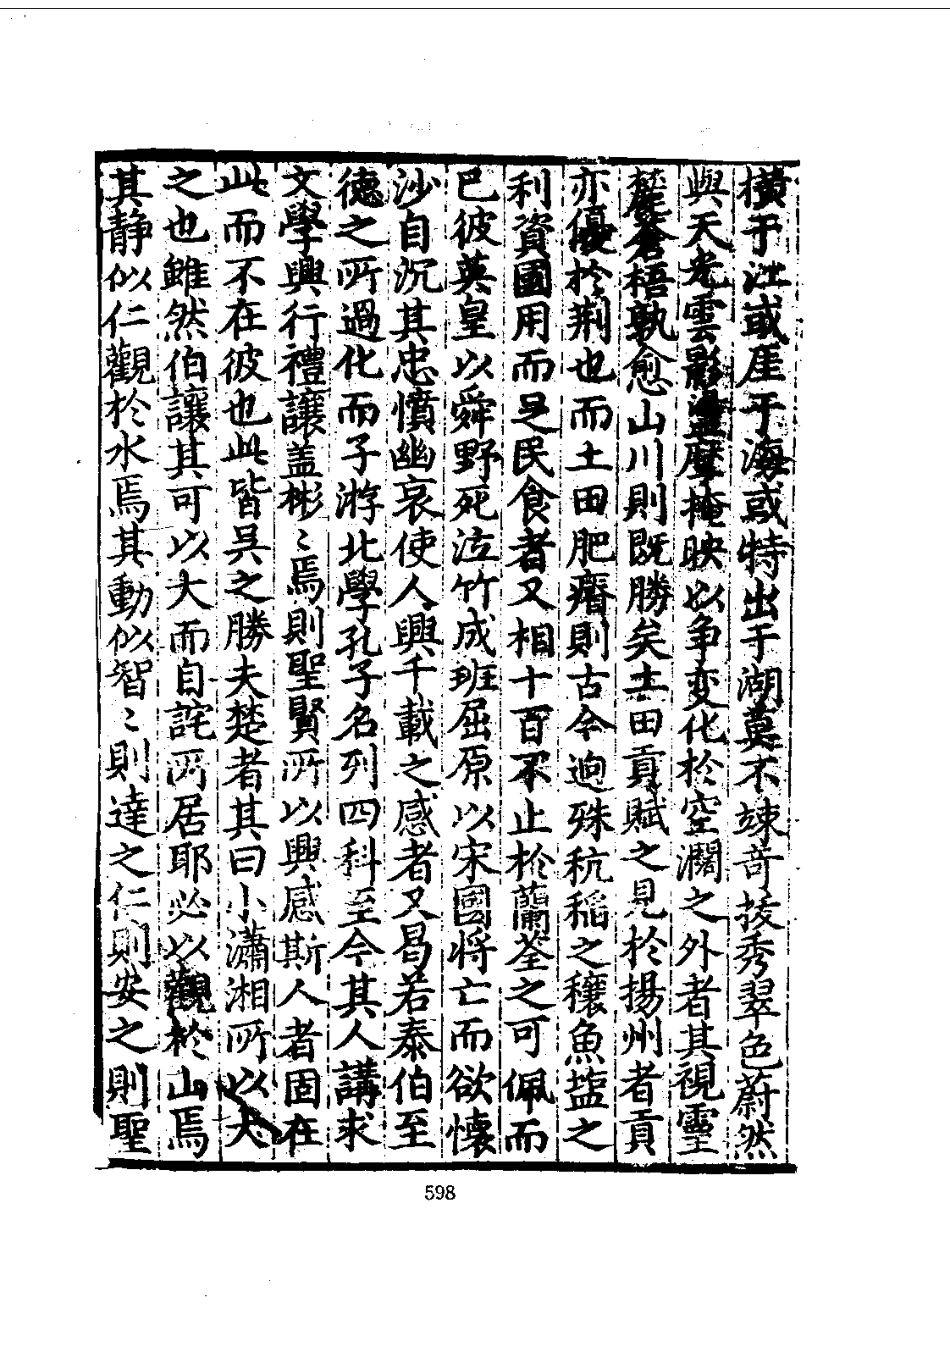 橫于江或厓于海或特出于湖莫不竦奇拔秀翠色蔚然
與天光雲影盪摩掩映以争变化於空濶之外者其視靈
麓蒼梧孰愈山川則既勝矣土田貢賦之見於揚州者貢
亦優於荆也而土田肥瘠則古今逈殊秔稲之穰魚塩之
利資國用而足民食者又相十百不止於蘭荃之可佩而
巳彼英皇以舜野死泣竹成班屈原以宋國将亡而欲懐
沙自沉其忠憤幽哀使人興千載之感者又曷若泰伯至
德之所過化而子游北學孔子名列四科至今其人講求
文學興行禮讓盖彬〻焉則聖賢所以興感斯人者固在
此而不在彼也此皆吴之勝夫楚者其曰小瀟湘所以大
之也雖然伯讓其可以大而自詫所居耶必以觀於山焉
其静似仁觀於水焉其動似智〻則達之仁則安之則聖
598